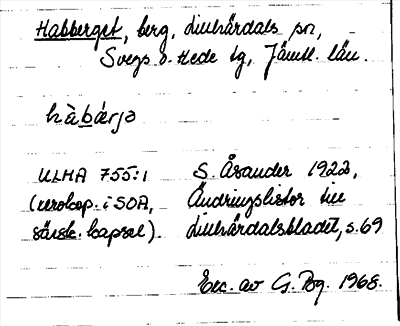 Habberget, berg, Linhärdals sn,
Svegs o. Hede tg, Jämtl. län.
hàbárjə
ULMA 755:1 S. Åsander 1922,
(xerokop. i SOA, Ändringslistor till
särsk. kapsel). Linhärdalsbladet, s. 69
Exc. av G. Bg. 1968.